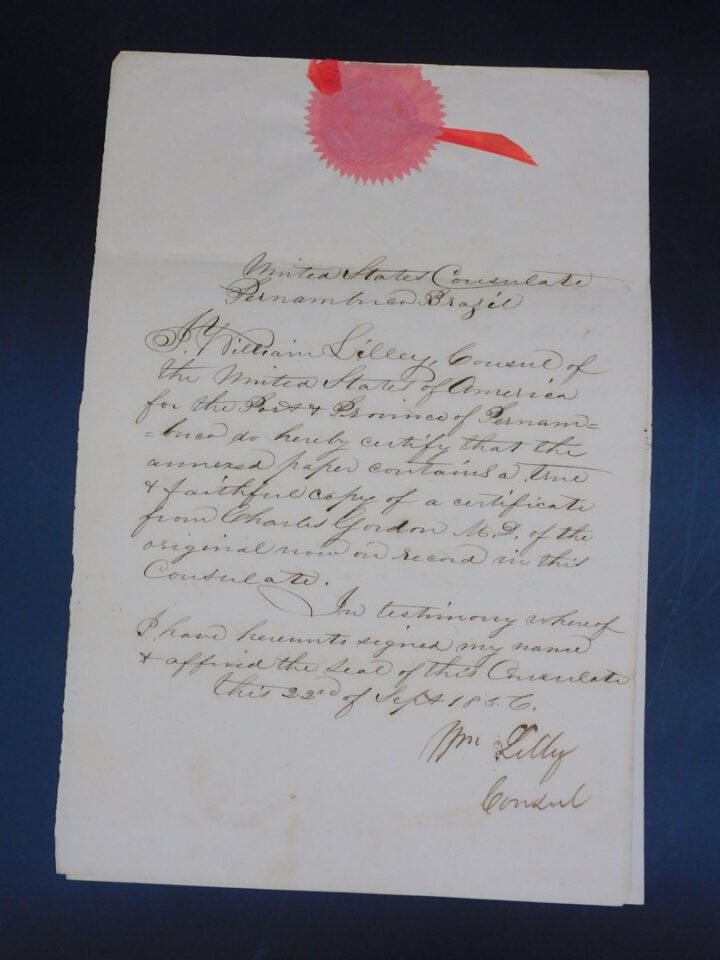 United States Consulate
Pernambuco Brazil
I, William Lilley, Consul of
the United States of America
for the Port & Province of Pernam=
=buco do hereby certify that the
annexed paper contains a true
& faithful copy of a certificate
from Charles Gordon M.D. of the
original now on record in this
Consulate.
In testimony whereof
I have hereunto signed my name
& affixed the seal of this Consulate
this 22nd of Sept 1856.
Wm Lilley
Consul